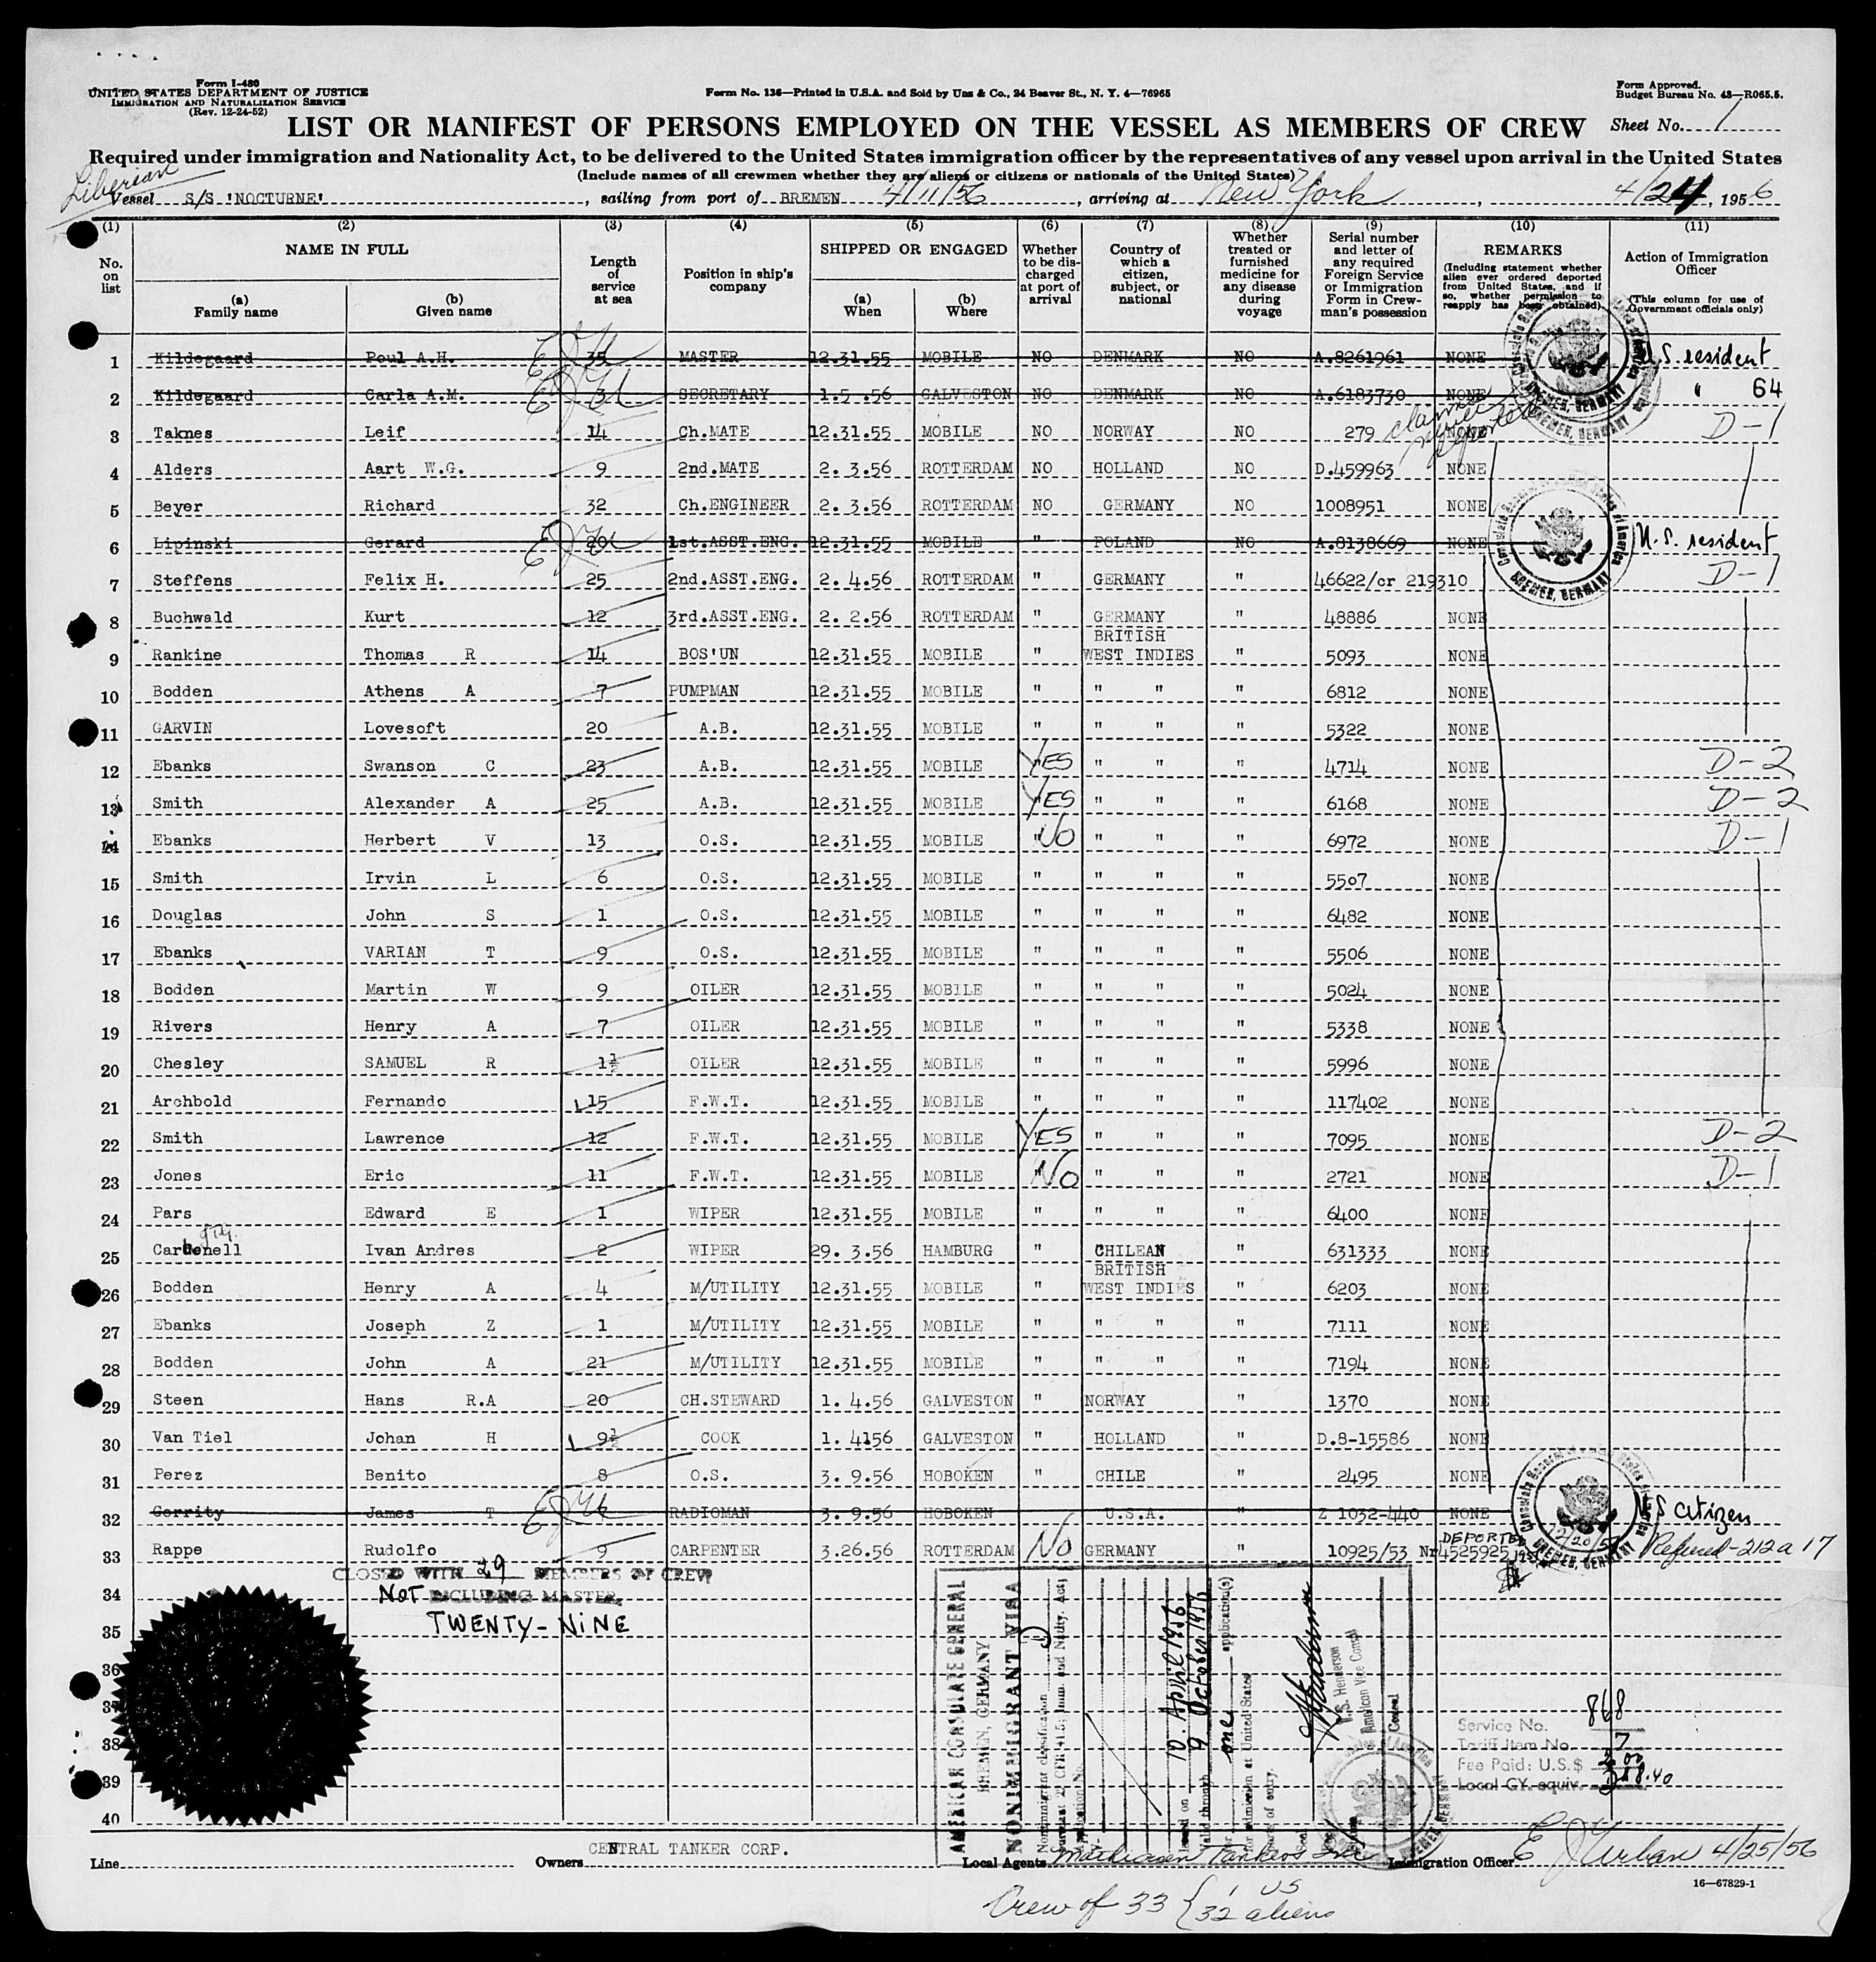 Form I-480
UNITED STATES DEPARTMENT OF JUSTICE
IMMIGRATION AND NATURALIZATION SERVICE
(Rev. 12-24-52)
Form No. 136—Printed in U.S.A. and Sold by Unz & Co., 24 Beaver St., N. Y. 4—76965
Form Approved.
Budget Bureau No. 43—R065.5.
LIST OR MANIFEST OF PERSONS EMPLOYED ON THE VESSEL AS MEMBERS OF CREW
Sheet No. 1
Required under immigration and Nationality Act, to be delivered to the United States immigration officer by the representatives of any vessel upon arrival in the United States
(Include names of all crewmen whether they are aliens or citizens or nationals of the United States)
Liberian
Vessel S/S 'NOCTURNE', sailing from port of BREMEN 4/11/56, arriving at New York, 4/24, 1956
(1) No. on list
(2) NAME IN FULL (a) Family name (b) Given name
(3) Length of service at sea
(4) Position in ship's company
(5) SHIPPED OR ENGAGED (a) When (b) Where
(6) Whether to be discharged at port of arrival
(7) Country of which a citizen, subject, or national
(8) Whether treated or furnished medicine for any disease during voyage
(9) Serial number and letter of any required Foreign Service or Immigration Form in Crewman's possession
(10) REMARKS (Including statement whether alien ever ordered deported from United States, and if so, whether permission to reapply has been obtained)
(11) Action of Immigration Officer (This column for use of Government officials only)
1 Kildegaard Poul A.H. 35 MASTER 12.31.55 MOBILE NO DENMARK NO A.8261961 NONE U.S. resident
2 Kildegaard Carla A.M. 3 SECRETARY 1.5 .56 GALVESTON NO DENMARK NO A.6183730 NONE " 64
3 Taknes Leif 14 Ch.MATE 12.31.55 MOBILE NO NORWAY NO 279 NONE D-1
4 Alders Aart W.G. 9 2nd.MATE 2. 3.56 ROTTERDAM NO HOLLAND NO D.459963 NONE
5 Beyer Richard 32 Ch.ENGINEER 2. 3.56 ROTTERDAM NO GERMANY NO 1008951 NONE
6 Lipinski Gerard 20 1st.ASST.ENG. 12.31.55 MOBILE " POLAND NO A.8138669 NONE U.S. resident
7 Steffens Felix H. 25 2nd.ASST.ENG. 2. 4.56 ROTTERDAM " GERMANY " 46622/cr 219310 D-1
8 Buchwald Kurt 12 3rd.ASST.ENG. 2. 2.56 ROTTERDAM " GERMANY " 48886 NONE
9 Rankine Thomas R 14 BOS'UN 12.31.55 MOBILE " BRITISH WEST INDIES " 5093 NONE
10 Bodden Athens A 7 PUMPMAN 12.31.55 MOBILE " " " " 6812 NONE
11 GARVIN Lovesoft 20 A.B. 12.31.55 MOBILE " " " " 5322 NONE
12 Ebanks Swanson C 23 A.B. 12.31.55 MOBILE YES " " " 4714 NONE D-2
13 Smith Alexander A 25 A.B. 12.31.55 MOBILE YES " " " 6168 NONE D-2
14 Ebanks Herbert V 13 O.S. 12.31.55 MOBILE NO " " " 6972 NONE D-1
15 Smith Irvin L 6 O.S. 12.31.55 MOBILE " " " " 5507 NONE
16 Douglas John S 1 O.S. 12.31.55 MOBILE " " " " 6482 NONE
17 Ebanks VARIAN T 9 O.S. 12.31.55 MOBILE " " " " 5506 NONE
18 Bodden Martin W 9 OILER 12.31.55 MOBILE " " " " 5024 NONE
19 Rivers Henry A 7 OILER 12.31.55 MOBILE " " " " 5338 NONE
20 Chesley SAMUEL R 1½ OILER 12.31.55 MOBILE " " " " 5996 NONE
21 Archbold Fernando 15 F.W.T. 12.31.55 MOBILE " " " " 117402 NONE
22 Smith Lawrence 12 F.W.T. 12.31.55 MOBILE YES " " " 7095 NONE D-2
23 Jones Eric 11 F.W.T. 12.31.55 MOBILE NO " " " 2721 NONE D-1
24 Pars Edward E 1 WIPER 12.31.55 MOBILE " " " " 6400 NONE
25 Carbonell Ivan Andres 2 WIPER 29. 3.56 HAMBURG " CHILEAN " 631333 NONE
26 Bodden Henry A 4 M/UTILITY 12.31.55 MOBILE " BRITISH WEST INDIES " 6203 NONE
27 Ebanks Joseph Z 1 M/UTILITY 12.31.55 MOBILE " " " " 7111 NONE
28 Bodden John A 21 M/UTILITY 12.31.55 MOBILE " " " " 7194 NONE
29 Steen Hans R.A 20 CH.STEWARD 1. 4.56 GALVESTON " NORWAY " 1370 NONE
30 Van Tiel Johan H 9½ COOK 1. 4156 GALVESTON " HOLLAND " D.8-15586 NONE
31 Perez Benito 8 O.S. 3. 9.56 HOBOKEN " CHILE " 2495 NONE
32 Gerrity James T RADIOMAN 3. 9.56 HOBOKEN U.S.A. " Z 1032-440 NONE US citizen
33 Rappe Rudolfo 9 CARPENTER 3.26.56 ROTTERDAM No GERMANY " 10925/53 Nr4525925 DEPORTED Refused 212a 17
34
35
36
37
38
39
40
CLOSED WITH 29 MEMBERS OF CREW
NOT INCLUDING MASTER
TWENTY-NINE
AMERICAN CONSULATE GENERAL
BREMEN, GERMANY
NONIMMIGRANT VISA
Nonimmigrant classification D
Issued on 10. April 1956
Valid through 9 October 1956
for one application(s)
for admission at United States
ports of entry.
W.S. Henderson
American Vice Consul
Consulate General of the United States of America
BREMEN, GERMANY
Service No. 868
Tariff Item No. 7
Fee Paid: U.S.$ 2.00
Local CY. equiv. 8.40
Line
Owners CENTRAL TANKER CORP.
Local Agents Mathiasen Tankers Inc
Immigration Officer E J Urban 4/25/56
16—67829-1
Crew of 33 { 1 US
32 aliens